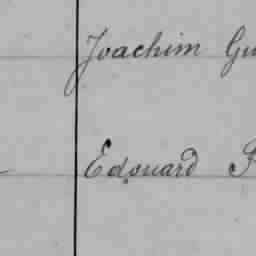 Joachim Gu
Edouard